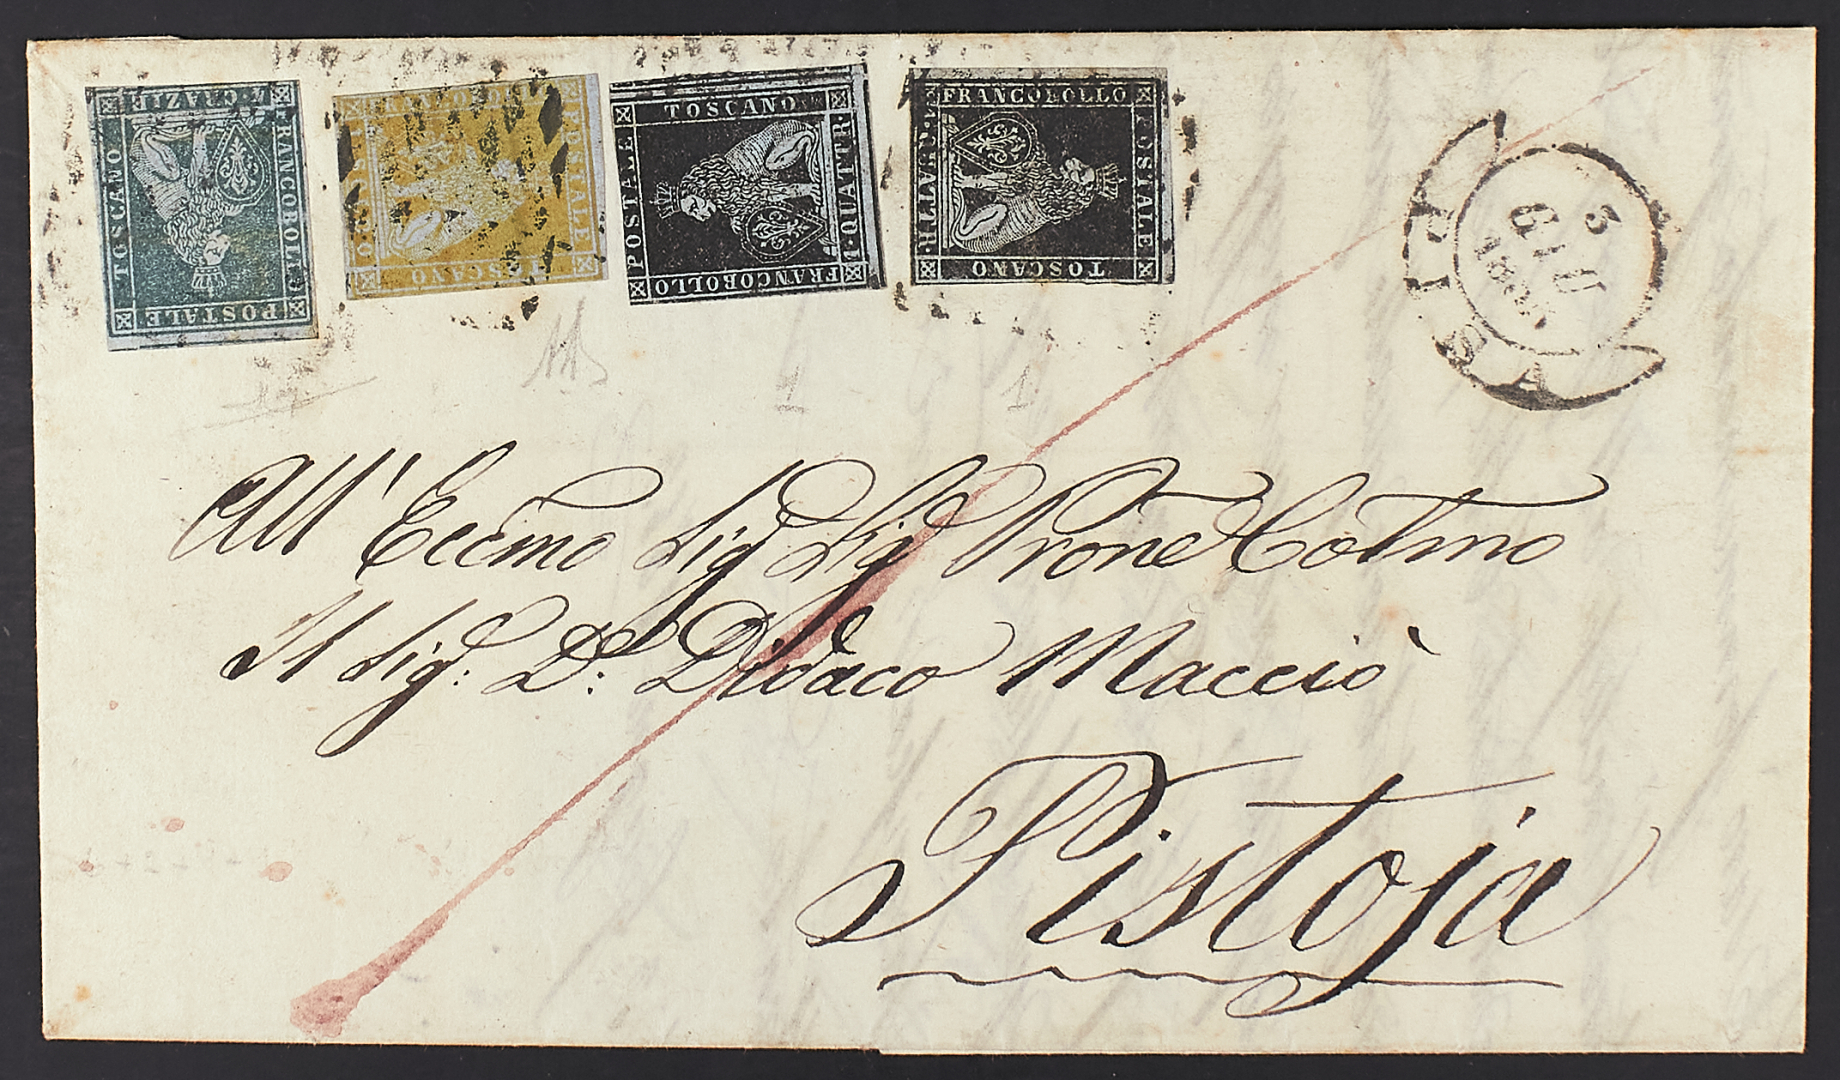 FRANCOBOLLO
POSTALE
TOSCANO
4·CRAZIE
FRANCOBOLLO
POSTALE
TOSCANO
FRANCOBOLLO
POSTALE
TOSCANO
1·QUATTR·
FRANCOBOLLO
POSTALE
TOSCANO
1·QUATTR·
PISA
5
GIU
1
1
All' Eccmo Sig Sig Prone Colmo
Il Sig: D: Didaco Macciò
Pistoja